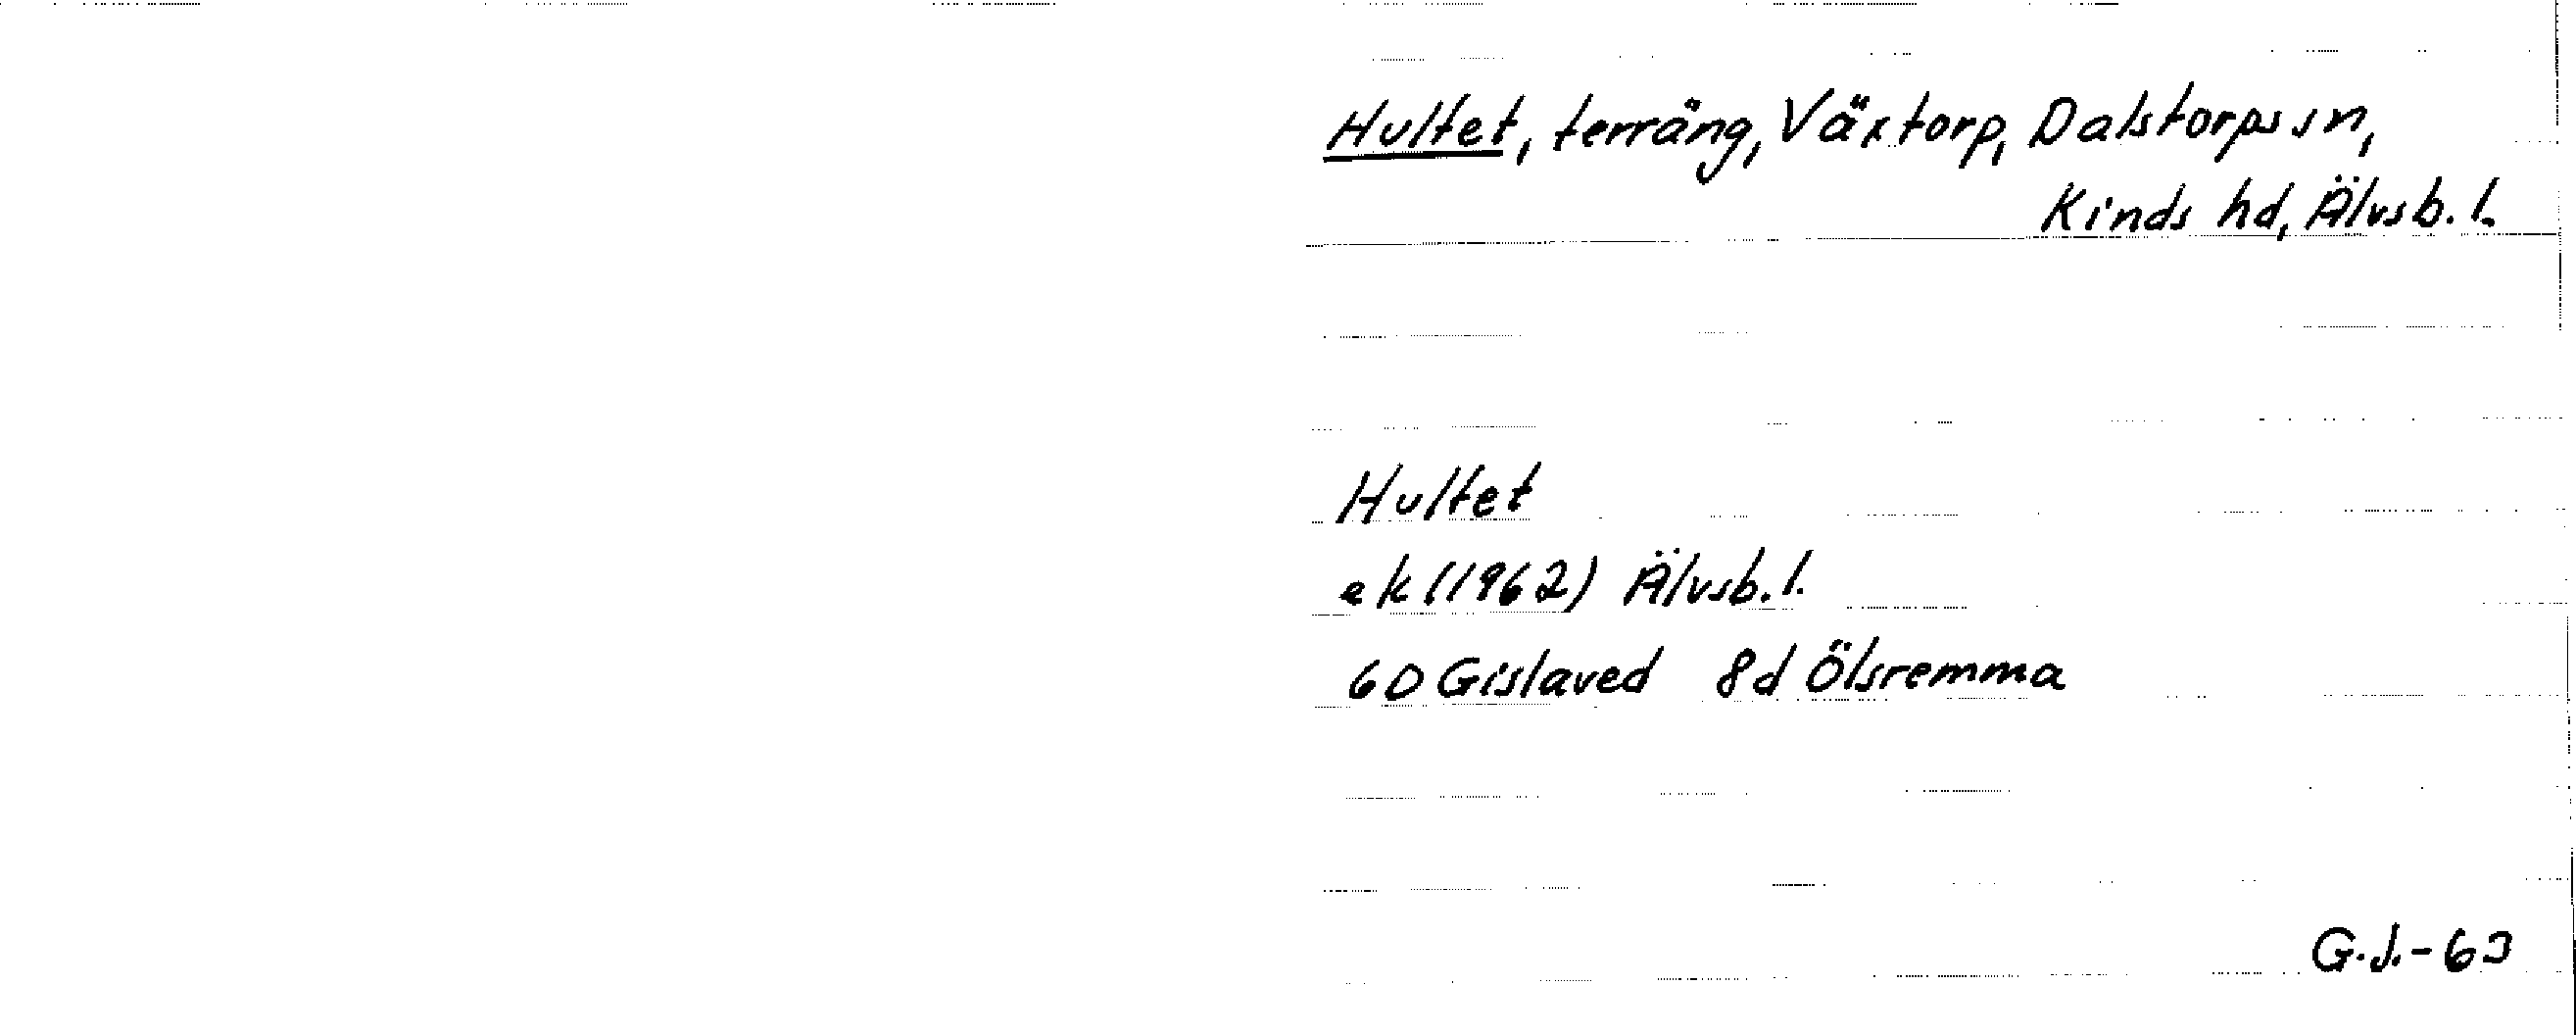 Hultet, terräng, Växtorp, Dalstorps sn,
Kinds hd, Älvsb. l.
Hultet
ek (1962) Älvsb. l.
6D Gislaved 8d Ölsremma
G.J.-63